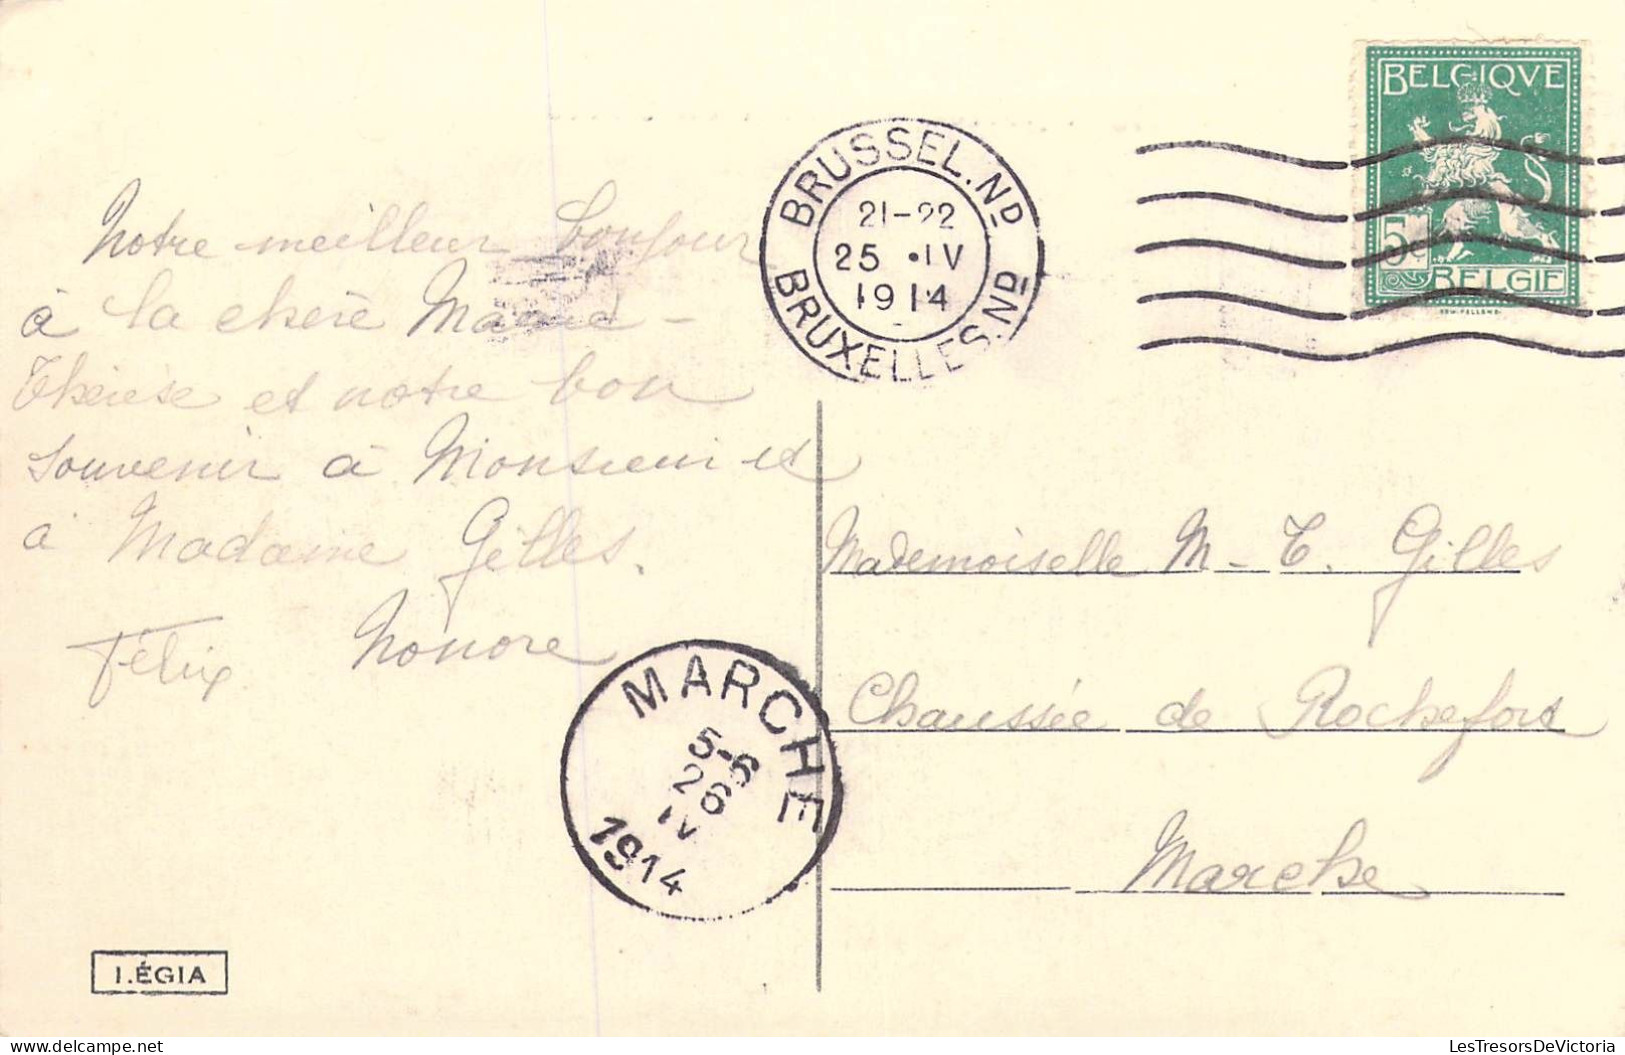 BELGIQVE
5c
BELGIE
BRUSSEL.ND
21-22
25 •IV
1914
BRUXELLES.ND
Notre meilleur bonjour
à la chère Marie-
Thérèse et notre bon
souvenir à Monsieur et
à Madame Gilles.
Félix Honoré
Mademoiselle M-T. Gilles
Chaussée de Rochefort
Marche
MARCHE
5-6
26
IV
1914
LÉGIA
LesTresorsDeVictoria